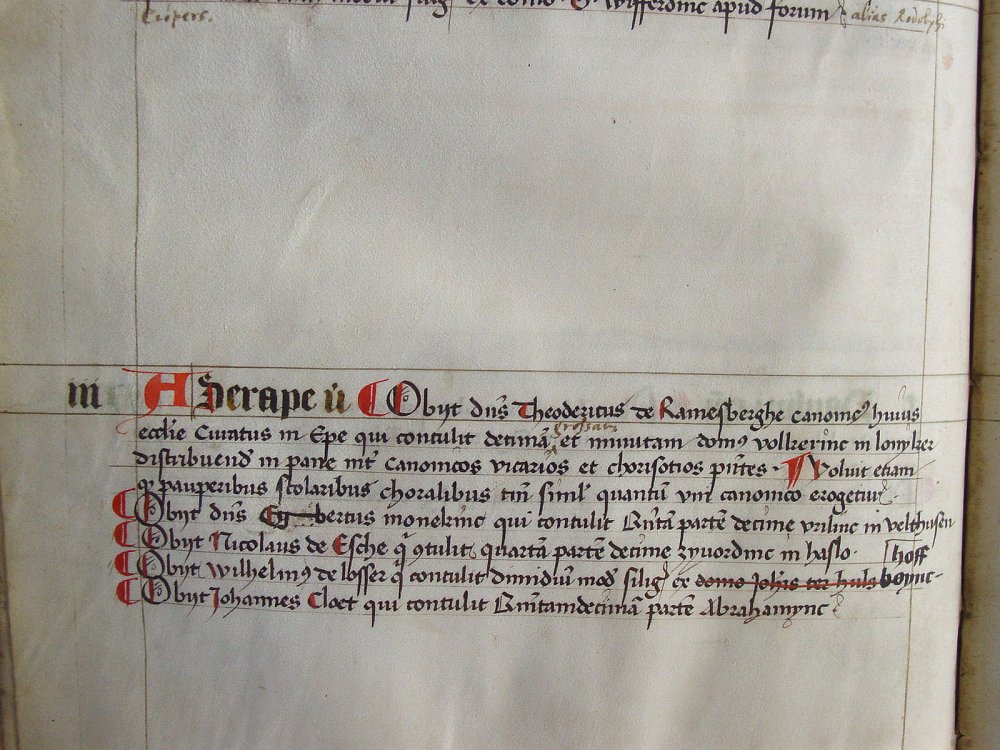 Cuipers.
apud forum alias Rodolphi
m A Serape ũ Obijt dñs Theodericus de Ramesberghe canonicꝰ huius
ecclie Curatus in Epe qui contulit decimã grossam et minutam domꝰ volkerinc in lonyker
distribuend in pane int canonicos vicarios et chorisotios pñtes. Voluit etiam
qꝫ pauperibus scolaribus choralibus tm̃ simil quantũ vni canonico erogetur.
Obijt dñs Eg bertus monekinc qui contulit Quintã partẽ decime vrilinc in velthusen
Obijt Nicolaus de Esche q̃ ꝯtulit quartã partẽ decime zyuordinc in haslo. hoff
Obijt wilhelmꝰ de losser q̃ contulit dimidiũ mod silig ce domo Johis ter huls boync.
Obijt Johannes Cloet qui contulit Quintamdecimã partẽ Abrahamync